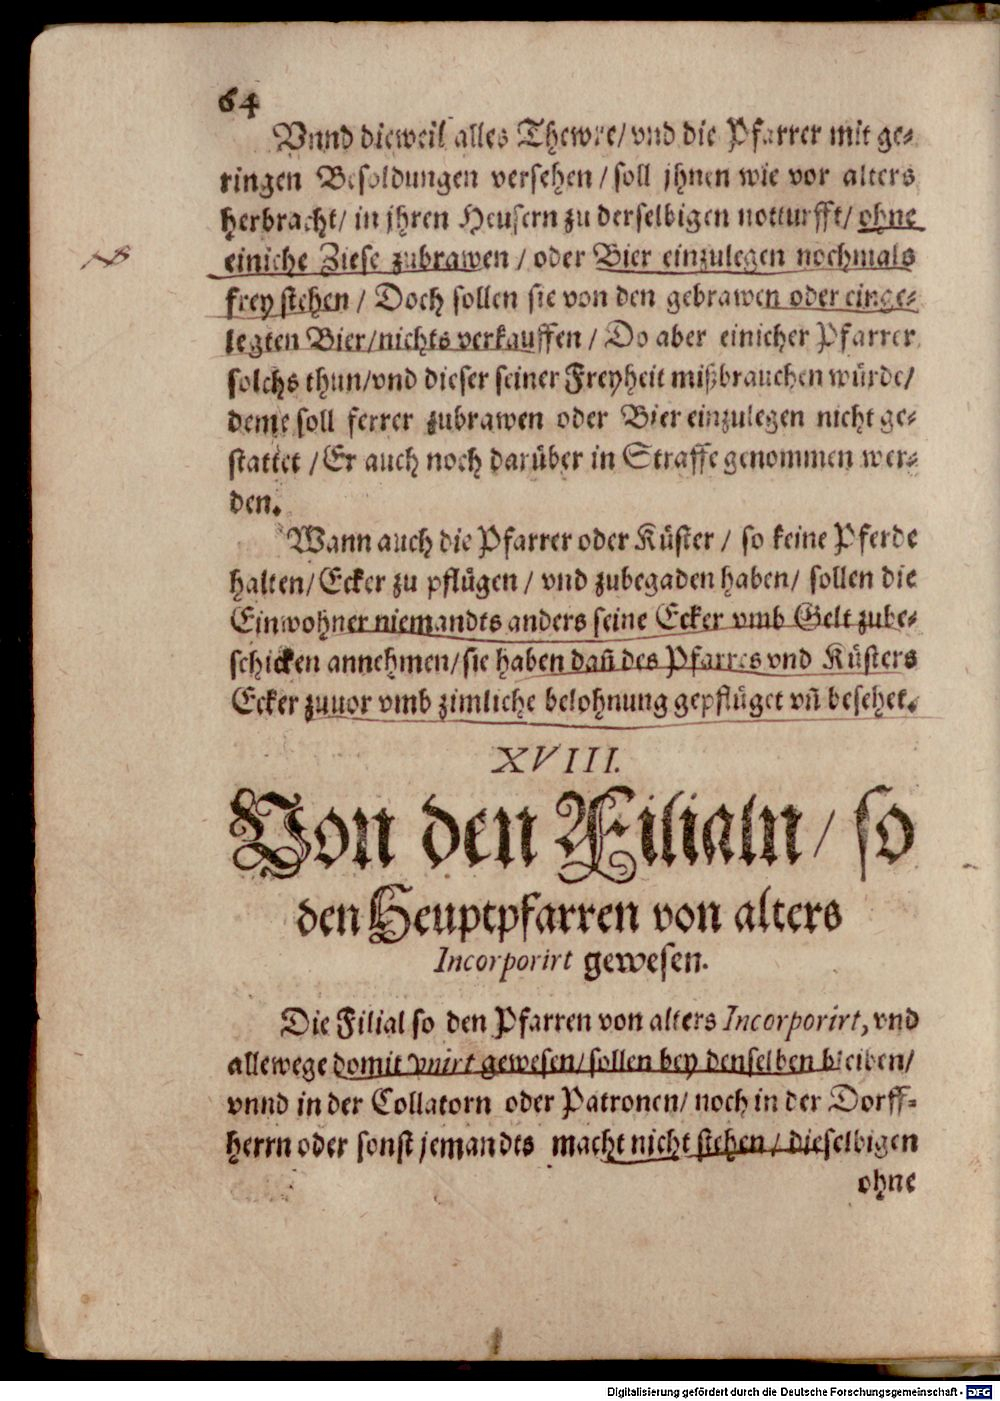 64
Vnnd dieweil alles Thewre/ vnd die Pfarrer mit ge-
ringen Besoldungen versehen / soll jhnen wie vor alters
herbracht/ in jhren Heusern zu derselbigen notturfft/ ohne
einiche Ziese zubrawen / oder Bier einzulegen nochmals
frey stehen / Doch sollen sie von den gebrawen oder einge-
legten Bier/nichts verkauffen / Do aber einicher Pfarrer
solchs thun/vnd dieser seiner Freyheit mißbrauchen würde/
deme soll ferrer zubrawen oder Bier einzulegen nicht ge-
stattet / Er auch noch darüber in Straffe genommen wer-
den.
Wann auch die Pfarrer oder Küster / so keine Pferde
halten/ Ecker zu pflügen / vnd zubegaden haben/ sollen die
Einwohner niemandts anders seine Ecker vmb Gelt zube-
schicken annehmen/sie haben dañ des Pfarres vnd Küsters
Ecker zuuor vmb zimliche belohnung gepflüget vñ besehet.
XVIII.
Von den Filialn/ so
den Heuptpfarren von alters
Incorporirt gewesen.
Die Filial so den Pfarren von alters Incorporirt, vnd
allewege domit vnirt gewesen/sollen bey denselben bleiben/
vnnd in der Collatorn oder Patronen/ noch in der Dorff-
herrn oder sonst jemandts macht nicht stehen / dieselbigen
ohne
NB
Digitalisierung gefördert durch die Deutsche Forschungsgemeinschaft - DFG